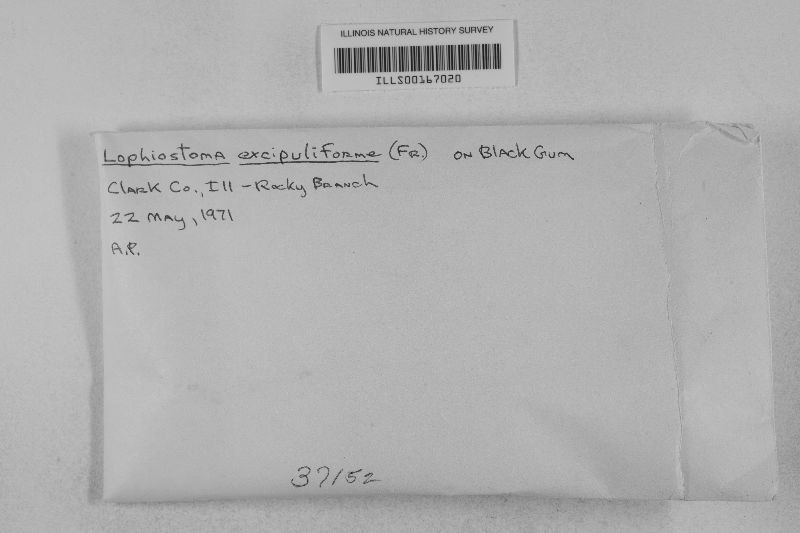 ILLINOIS NATURAL HISTORY SURVEY
ILLS00167020
Lophiostoma excipuliforme (Fr.) on Black Gum
Clark Co., Ill - Rocky Branch
22 May, 1971
A.R.
37152